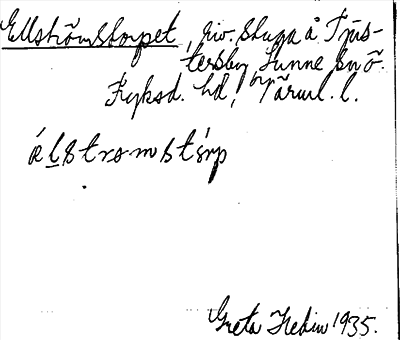 Ellströmstorpet, riv. stuga å Tjus-
tersby, Sunne sn ö.
Fryksd. hd, Värml. l.
ǽlstrømstórp
Greta Hedin 1935.